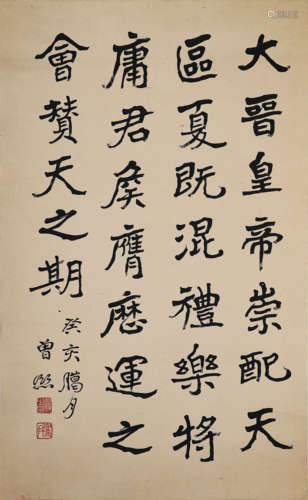 大晉皇帝崇配天
區夏既混禮樂將
庸君矦膺厯運之
會贊天之期
癸亥臈月
曾熙